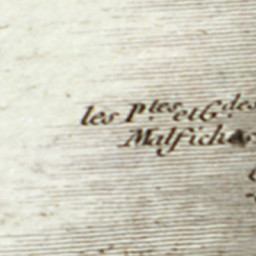 les P.tes et G.des
Malfiches